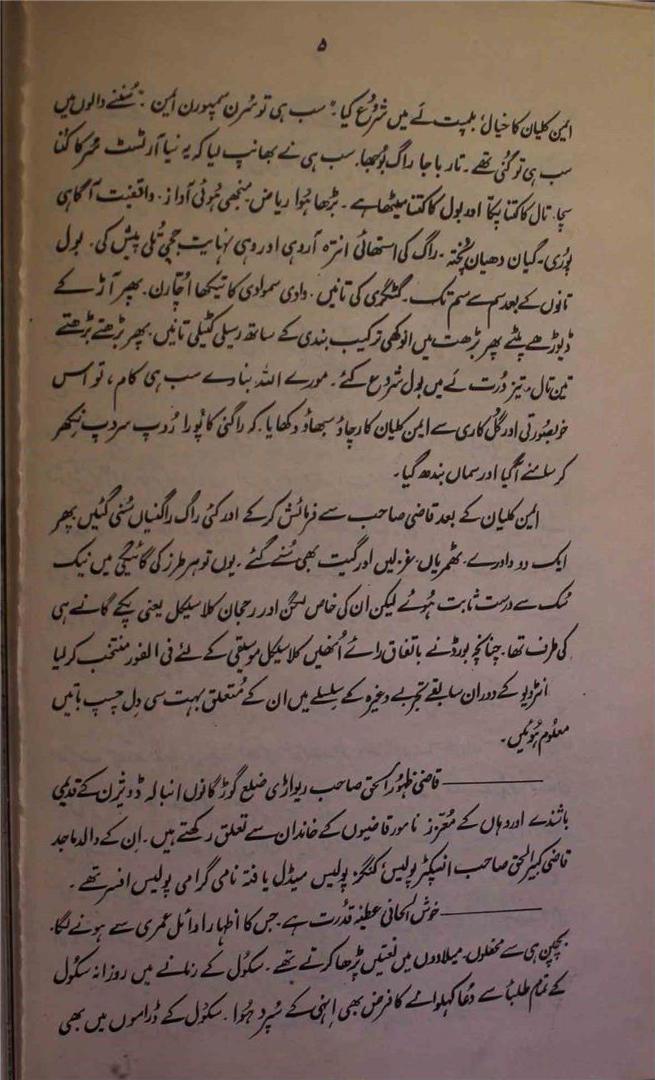 ۵
ایمن کلیان کا خیال، بلمپت لَے میں شروع کیا۔ "سب ہی تو سُرن سمپورن ایمن" سُننے والوں میں
سب ہی تو گنی تھے۔ تار باجا راگ بُوجھا۔ سب ہی نے بھانپ لیا کہ یہ نیا آرٹسٹ سُر کا کتنا
سچا۔ تال کا کتنا پکّا اور بول کا کتنا میٹھا ہے۔ بڑھا ہُوا ریاض منجھی ہُوئی آواز۔ واقفیت آگاہی
پُوری۔ گیان دھیان پُختہ۔ راگ کی استھائی انترہ آروہی اور وہی نہایت جچی تُلی پیش کی۔ بول
تانوں کے بعد سم سے سم تک۔ گٹگری کی تانیں۔ وادی سموادی کا تیکھا اُچّارن۔ پھر آڑ کے
ڈیوڑھے پلٹے پھر بڑھت میں انوکھی ترکیب بندی کے ساتھ رسیلی کٹیلی تانیں۔ پھر بڑھتے بڑھتے
تین تال، تیز دُرت لَے میں بول شروع کئے۔ مورے اللہ بنا دے سب ہی کام، تو اس
خوبصورتی اور گُل کاری سے ایمن کلیان کا رچاؤ سبھاؤ دکھایا۔ کہ راگنی کا پُورا رُوپ سروپ نِکھر
کر سامنے آگیا اور سماں بندھ گیا۔
ایمن کلیان کے بعد قاضی صاحب سے فرمائش کرکے اور کئی راگ راگنیاں سُنی گئیں پھر
ایک دو دادرے۔ ٹھمریاں۔ غزلیں اور گیت بھی سُنے گئے۔ یوں تو ہر طرز کی گائیکی میں نیک
سُک سے درست ثابت ہُوئے لیکن ان کی خاص لگن اور رجحان کلاسیکل یعنی پکے گانے ہی
کی طرف تھا۔ چنانچہ بورڈ نے باتفاق رائے اُنھیں کلاسیکل موسیقی کے لئے فی الفور منتخب کر لیا
انٹرویو کے دوران سابقے تجربے وغیرہ کے سلسلے میں ان کے مُتعلق بہت سی دِل چسپ باتیں
معلوم ہُوئیں۔
——— قاضی ظہُور الحق صاحب ریواڑی ضلع گوڑگانوں انبالہ ڈویژن کے قدیمی
باشندے اور وہاں کے معزّز نامور قاضیوں کے خاندان سے تعلق رکھتے ہیں۔ اِن کے والد ماجد
قاضی کبیر الحق صاحب انسپکٹر پولیس، کنگز پولیس میڈل یافتہ نامی گرامی پولیس افسر تھے۔
——— خوش الحانی عطیۂ قدرت ہے۔ جس کا اظہار اوائل عمری سے ہونے لگا۔
بچپن ہی سے محفلوں۔ میلادوں میں نعتیں پڑھا کرتے تھے۔ سکُول کے زمانے میں روزانہ سکُول
کے تمام طلباء سے دُعا کہلوانے کا فرض بھی اِنہی کے سُپرد ہُوا۔ سکُول کے ڈراموں میں بھی